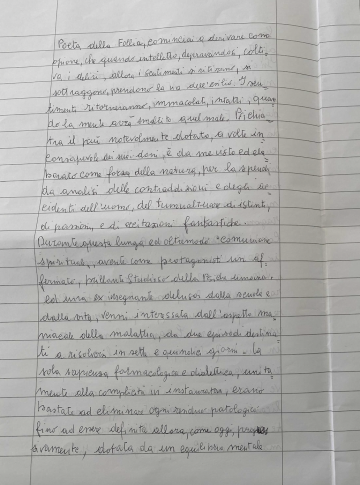 Poeta della Follia, cominciai a derivare come
epure, che quando intelletto, depravandosi, colti-
va i deliri, allora i sentimenti si ritirano, si
sottraggono, prendono la via dell'esilio. I sen-
timenti ritorneranno, immacolati, intatti, quan-
do la mente avrà smaltito quel male. Pichia-
tra il più notevolmente dotato, a volte in-
consapevole dei suoi doni, è da me visto ed ela-
borato come forza della natura, per la sapienza
da analisi delle contraddizioni e degli ac-
cidenti dell'uomo, del tumultuare di istinti,
di passioni, e di eccitazioni fantastiche.
Durante questa lunga ed oltremodo "comunione
spirituale, avente come protagonisti un af-
fermato, brillante studioso della Psiche umana
ed una ex insegnante delusa dalla scuola e
dalla vita, venni interessata dall'aspetto ma-
niacale della malattia, da due episodi destina-
ti a risolversi in sette e quindici giorni. La
sola sapienza farmacologica e dialettica, unita-
mente alla complicità instauratasi, erano
bastate ad eliminare ogni residuo patologico
fino ad essere definita allora, come oggi,
bravamente, dotata da un equilibrio mentale